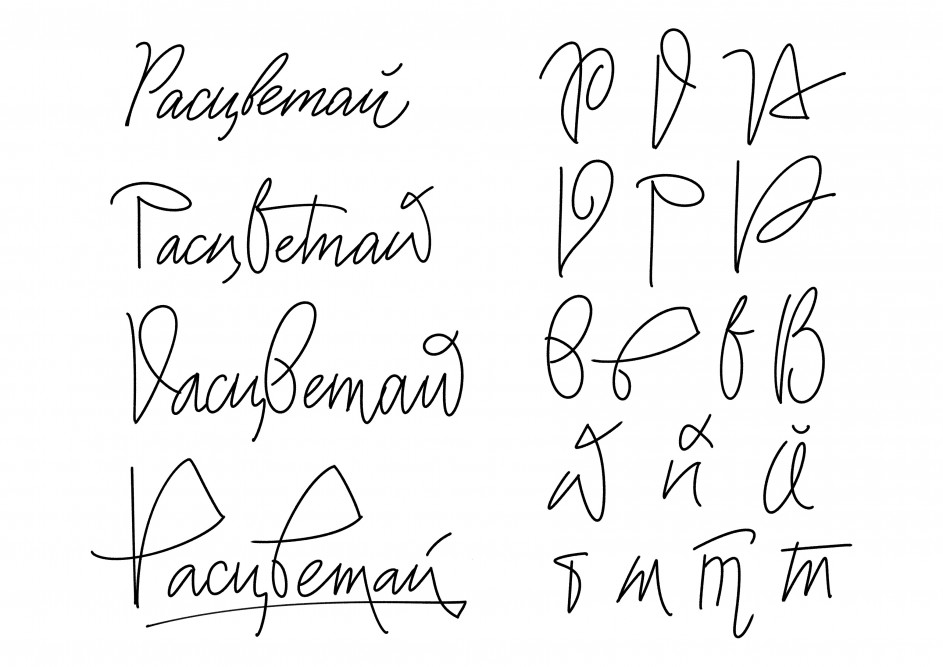 Расцветай
Расцветай
Расцветай
Расцветай
Р Р Р
Р Р Р
в в в В
й й й
т т т т